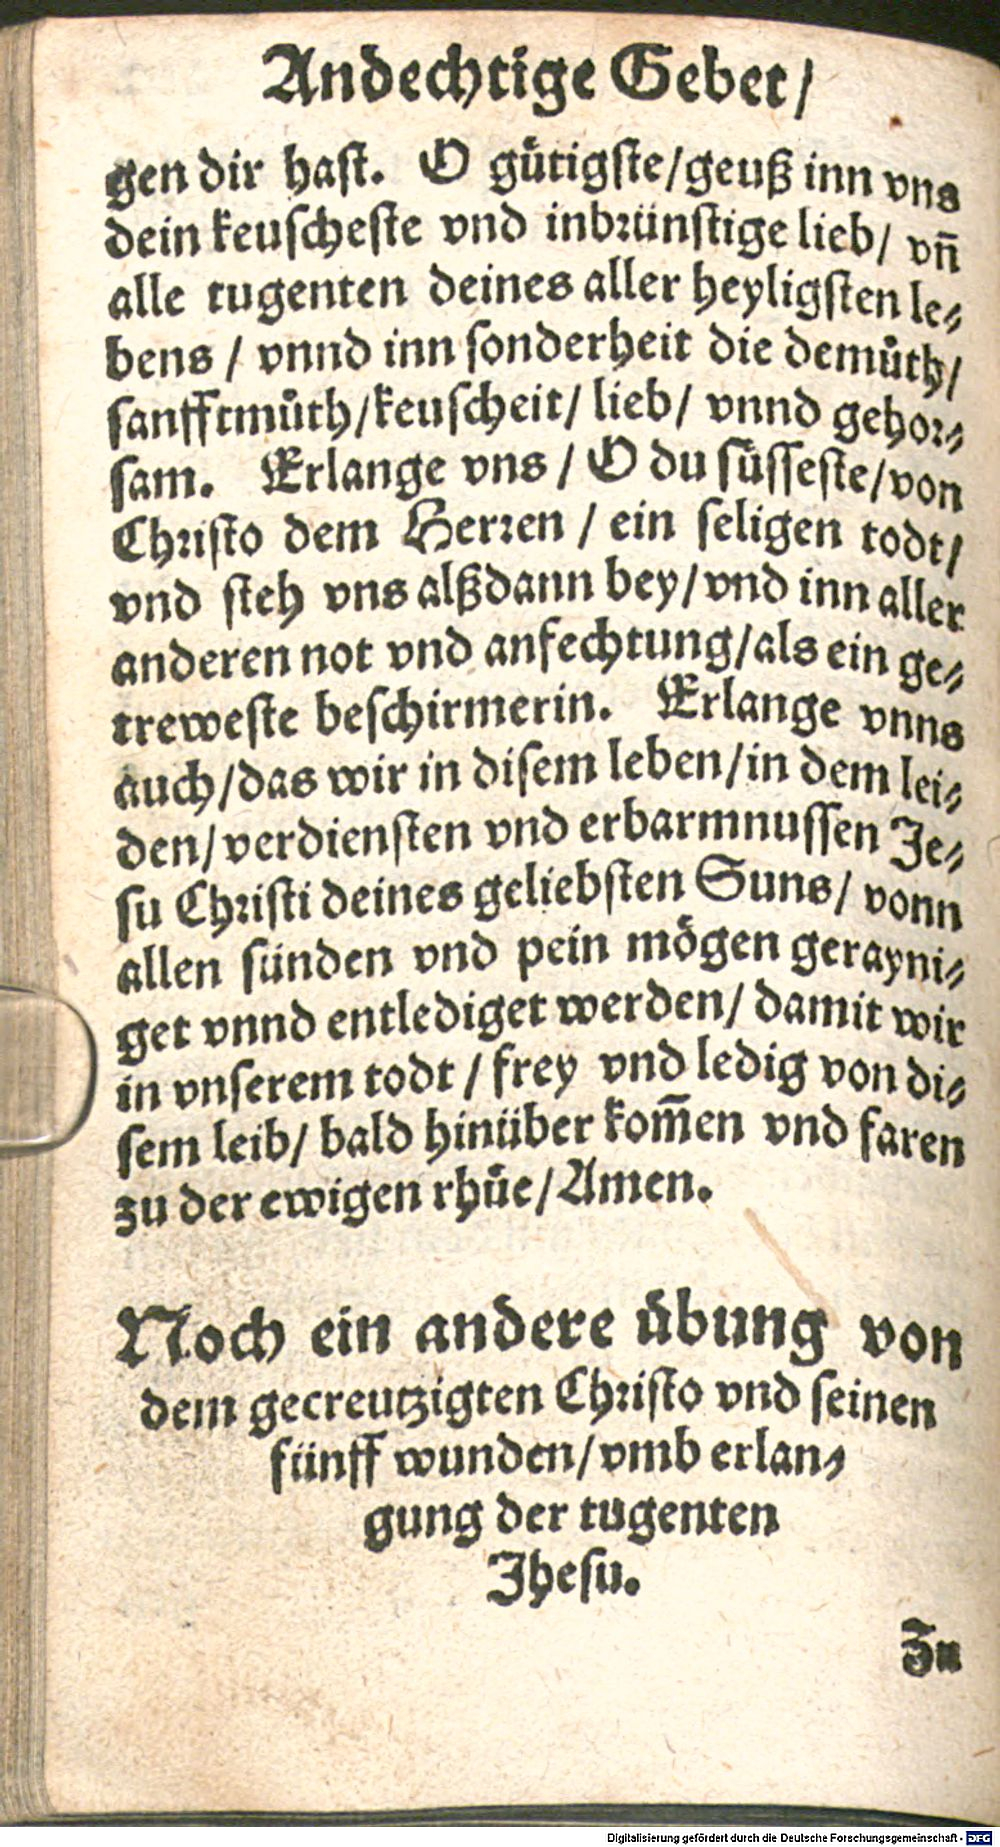 Andechtige Gebet/
gen dir hast. O gütigste/geuß inn vns
dein keuscheste vnd inbrünstige lieb/ vn̄
alle tugenten deines aller heyligsten le⸗
bens / vnnd inn sonderheit die demůth/
sanfftmůth/keuscheit/ lieb/ vnnd gehor⸗
sam. Erlange vns / O du süsseste/von
Christo dem Herren / ein seligen todt/
vnd steh vns alßdann bey/vnd inn aller
anderen not vnd anfechtung/als ein ge⸗
treweste beschirmerin. Erlange vnns
auch/das wir in disem leben/in dem lei⸗
den/verdiensten vnd erbarmnussen Je⸗
su Christi deines geliebsten Suns/ vonn
allen sünden vnd pein mögen gerayni⸗
get vnnd entlediget werden/ damit wir
in vnserem todt / frey vnd ledig von di⸗
sem leib/ bald hinüber kom̄en vnd faren
zu der ewigen rhůe/Amen.
Noch ein andere übung von
dem gecreutzigten Christo vnd seinen
fünff wunden/vmb erlan⸗
gung der tugenten
Jhesu.
Zu
Digitalisierung gefördert durch die Deutsche Forschungsgemeinschaft - DFG